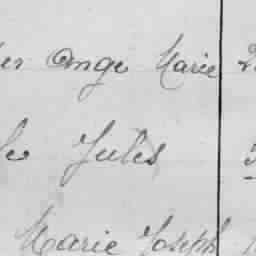 Ange Marie
Jules
Marie Joseph